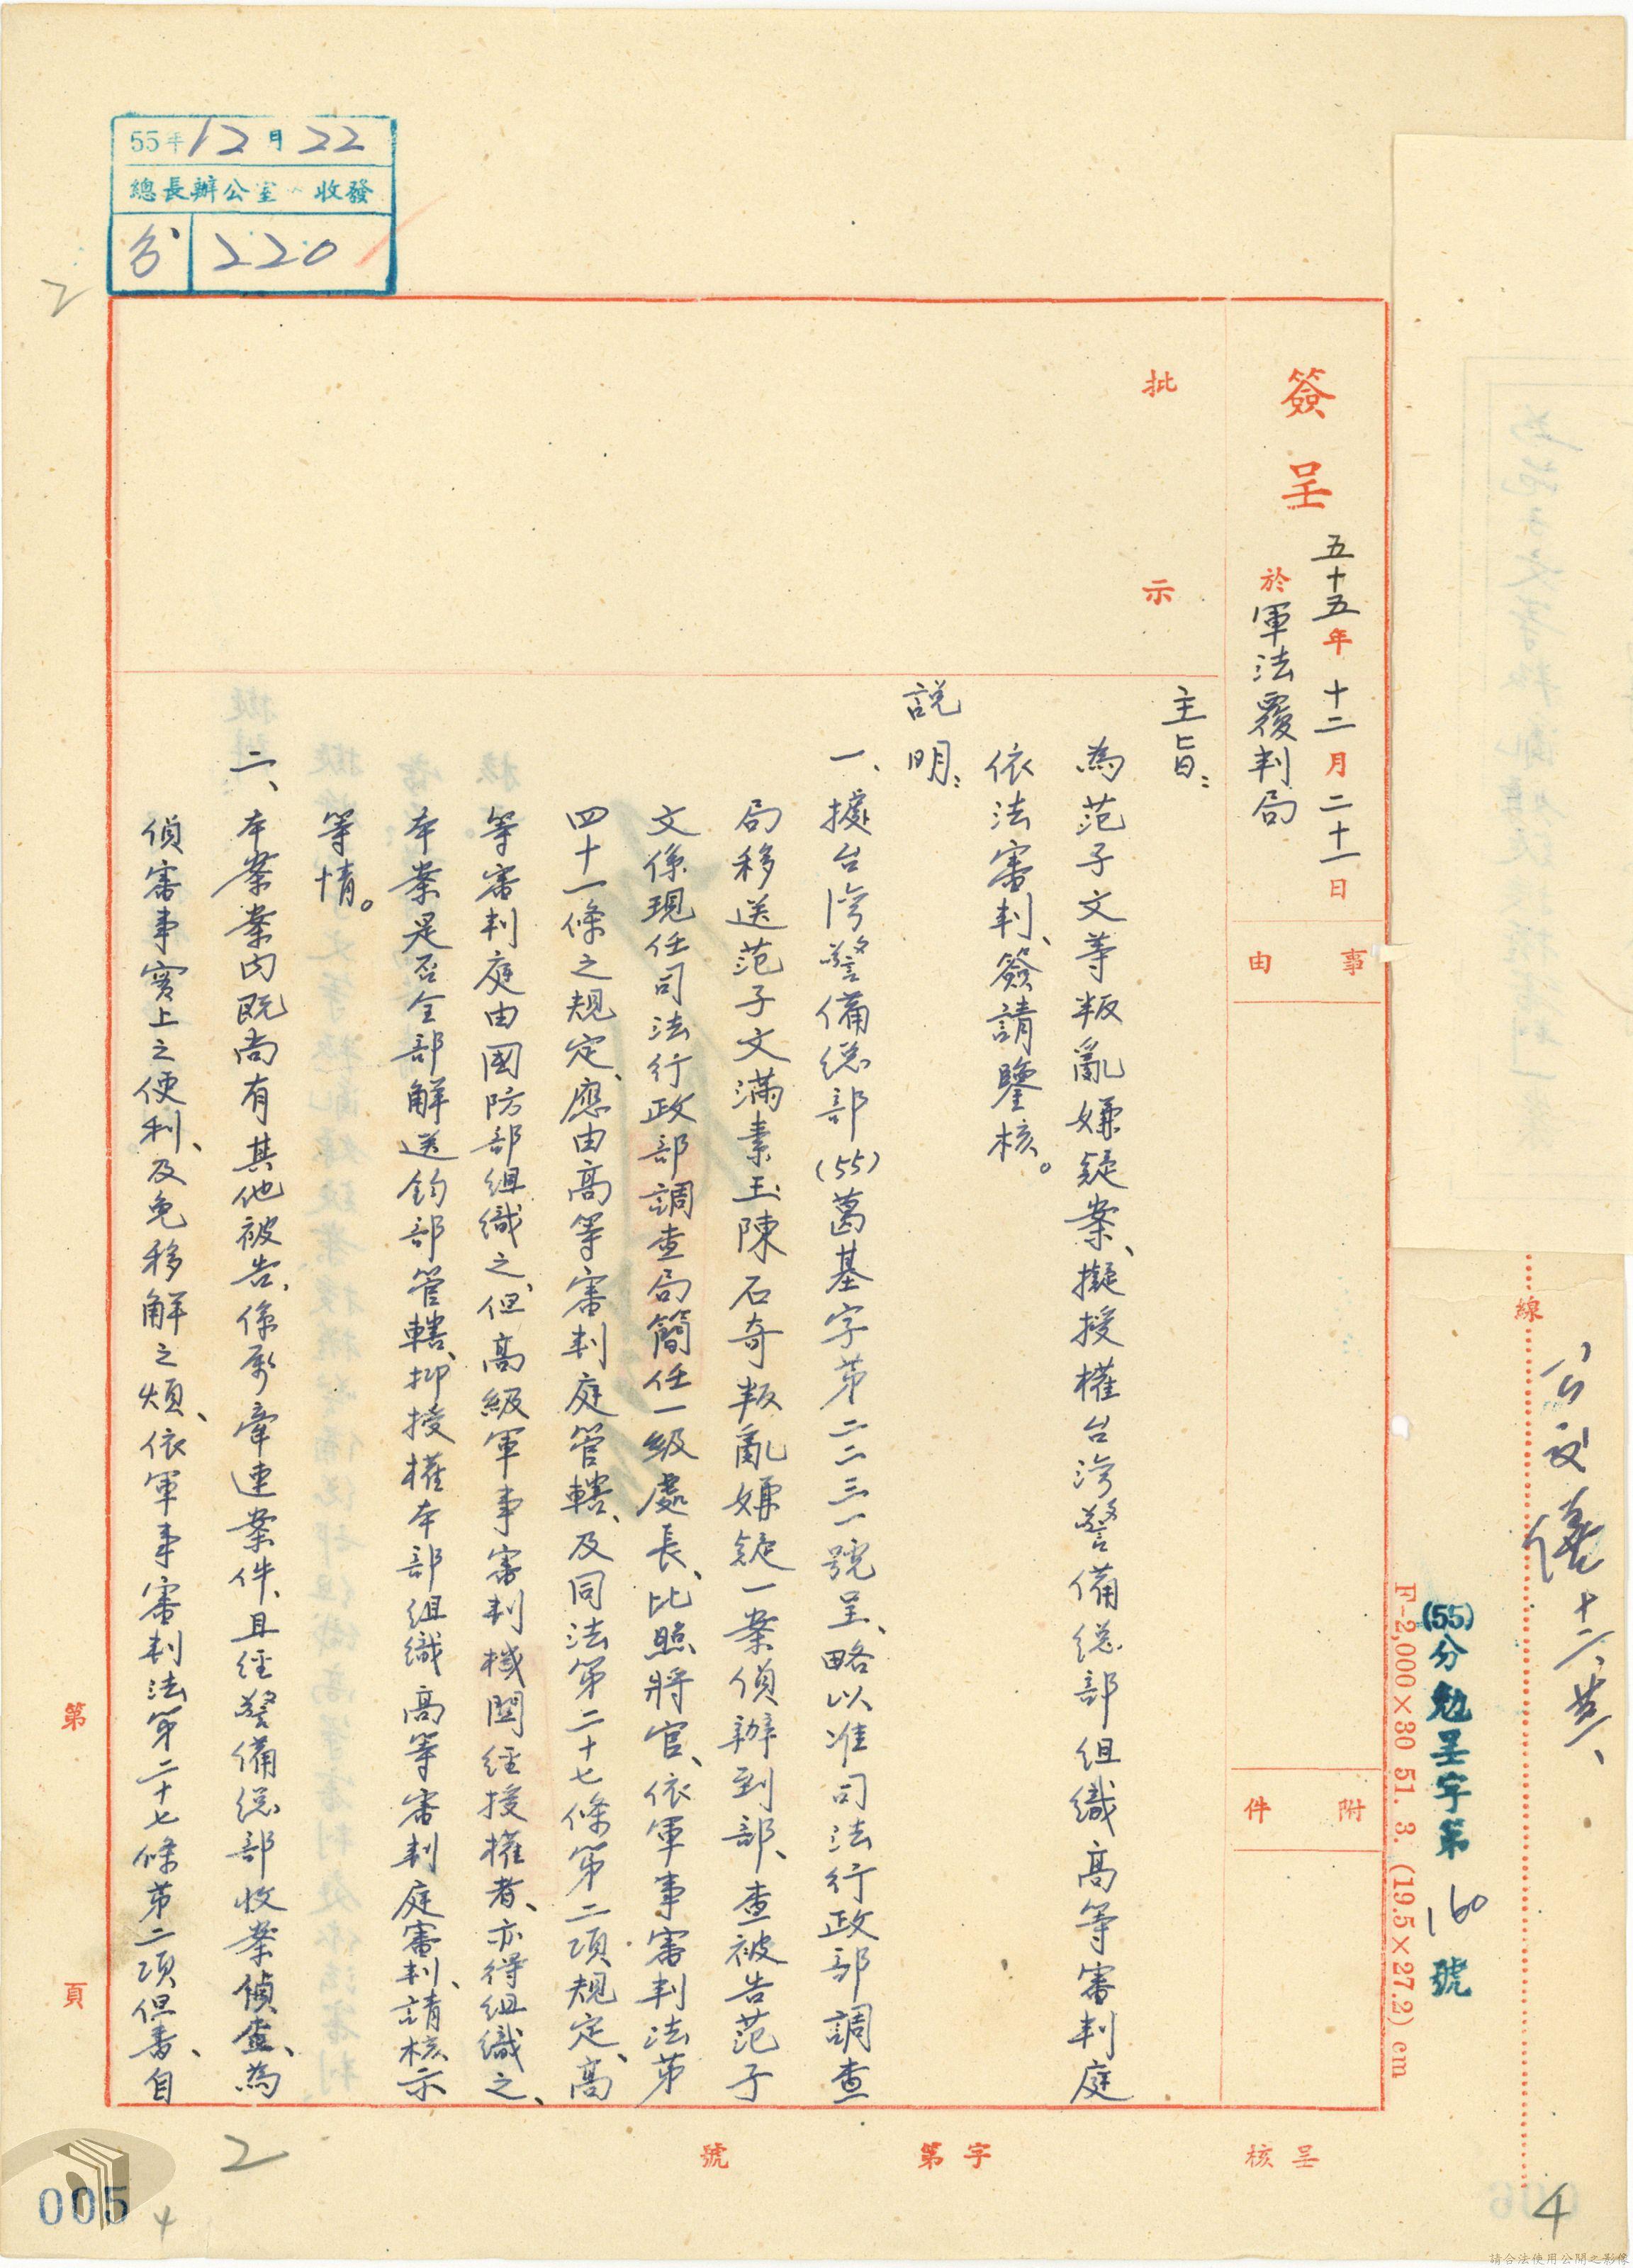 55年12月22
總長辦公室 收發
220
簽呈
五十五年十二月二十一日
於軍法覆判局
事由
附件
批示
主旨：
為范子文等叛亂嫌疑案、擬授權台灣警備總部組織高等審判庭
依法審判、簽請鑒核。
說明：
一、據台灣警備總部(55)葛基字第二二三一號呈、略以准司法行政部調查
局移送范子文滿素玉陳石奇叛亂嫌疑一案偵辦到部、查被告范子
文係現任司法行政部調查局簡任一級處長、比照將官、依軍事審判法第
四十一條之規定、應由高等審判庭管轄、及同法第二十七條第二項規定、高
等審判庭由國防部組織之、但高級軍事審判機關經授權者、亦得組織之、
本案是否全部解送鈞部管轄、抑授權本部組織高等審判庭審判、請核示
等情。
二、本案案內既尚有其他被告、係屬牽連案件、且經警備總部收案偵查、為
偵審事實上之便利、及免移解之煩、依軍事審判法第二十七條第二項但書、自
第 頁
呈核
字第 號
線
(55)分勉呈字第160號
F-2,000×30 51. 3. (19.5×27.2) cm
2
2
4
4
005
請合法使用公開之影像